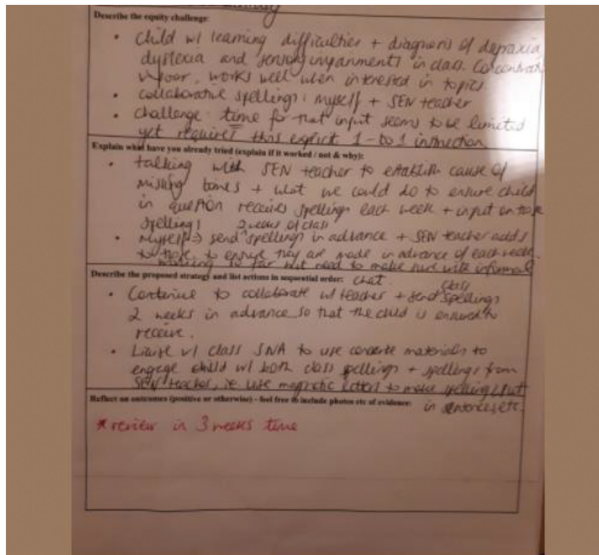 Describe the equity challenge:
• Child w/ learning difficulties + diagnosis of
dyslexia and sensory impairments in class. Concentration
poor, works well when interested in topics
• collaborative spellings: myself + SEN teacher
• challenge: time for that input seems to be limited
yet requires this explicit 1-to 1 instruction
Explain what have you already tried (explain if it worked / not & why):
• talking with SEN teacher to establish cause of
missing + what we could do to ensure child
in question receives spellings each week + input on those
spellings
2 weeks of class
• Myself → send spellings in advance + SEN teacher adds
to those, to ensure they are made in advance of each week.
working so far but need to make sure with informal
chat.
Describe the proposed strategy and list actions in sequential order:
class
• Continue to collaborate w/ teacher + send spellings
2 weeks in advance so that the child is ensured to
receive.
• Liaise w/ class SNA to use concrete materials to
engage child w/ both class spellings + spellings from
SEN teacher, ie use magnetic letters to make spelling, put
in sentences, etc.
Reflect on outcomes (positive or otherwise) - feel free to include photos etc of evidence:
* review in 3 weeks time